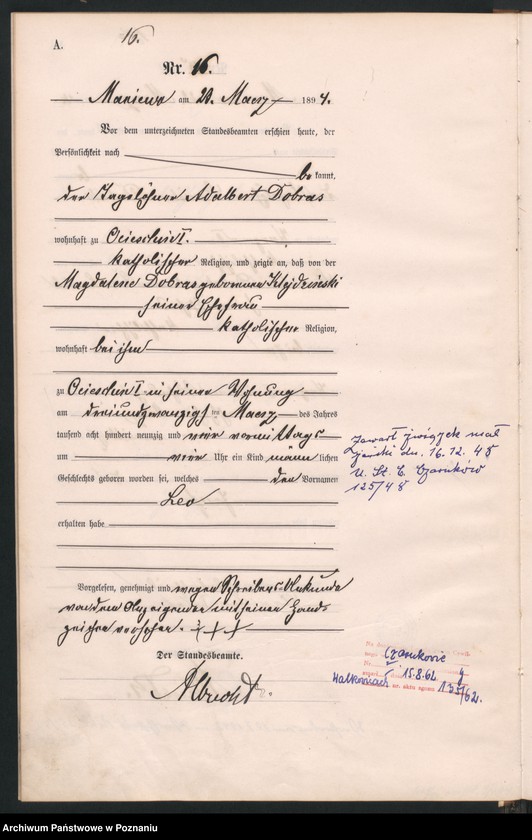 A.
16.
Nr. 16.
am 28. Maerz 1894.
Vor dem unterzeichneten Standesbeamten erschien heute, der
Persönlichkeit nach
bekannt,
der Tagelöhner Adalbert Dobras
wohnhaft zu Ocieschin I.
katholischer Religion, und zeigte an, daß von der
Magdalene Dobras geborenen
seiner Ehefrau
katholischer Religion,
wohnhaft bei ihm
zu Ocieschin I in seiner Wohnung
am dreiundzwanzigsten Maerz des Jahres
tausend acht hundert neunzig und vier vormittags
um vier Uhr ein Kind männlichen
Geschlechts geboren worden sei, welches den Vornamen
Leo
erhalten habe
Vorgelesen, genehmigt und wegen Schreibens Unkunde
von dem Anzeigenden mit seinen Hand-
zeichen versehen. +++
Der Standesbeamte.
Albrecht
zawarł związek mał
żeński dn. 16. 12. 48
U. St. C. Czarnków
125/48
Czarnków
15.8.62
nr. aktu zgonu 135/62.
Archiwum Państwowe w Poznaniu